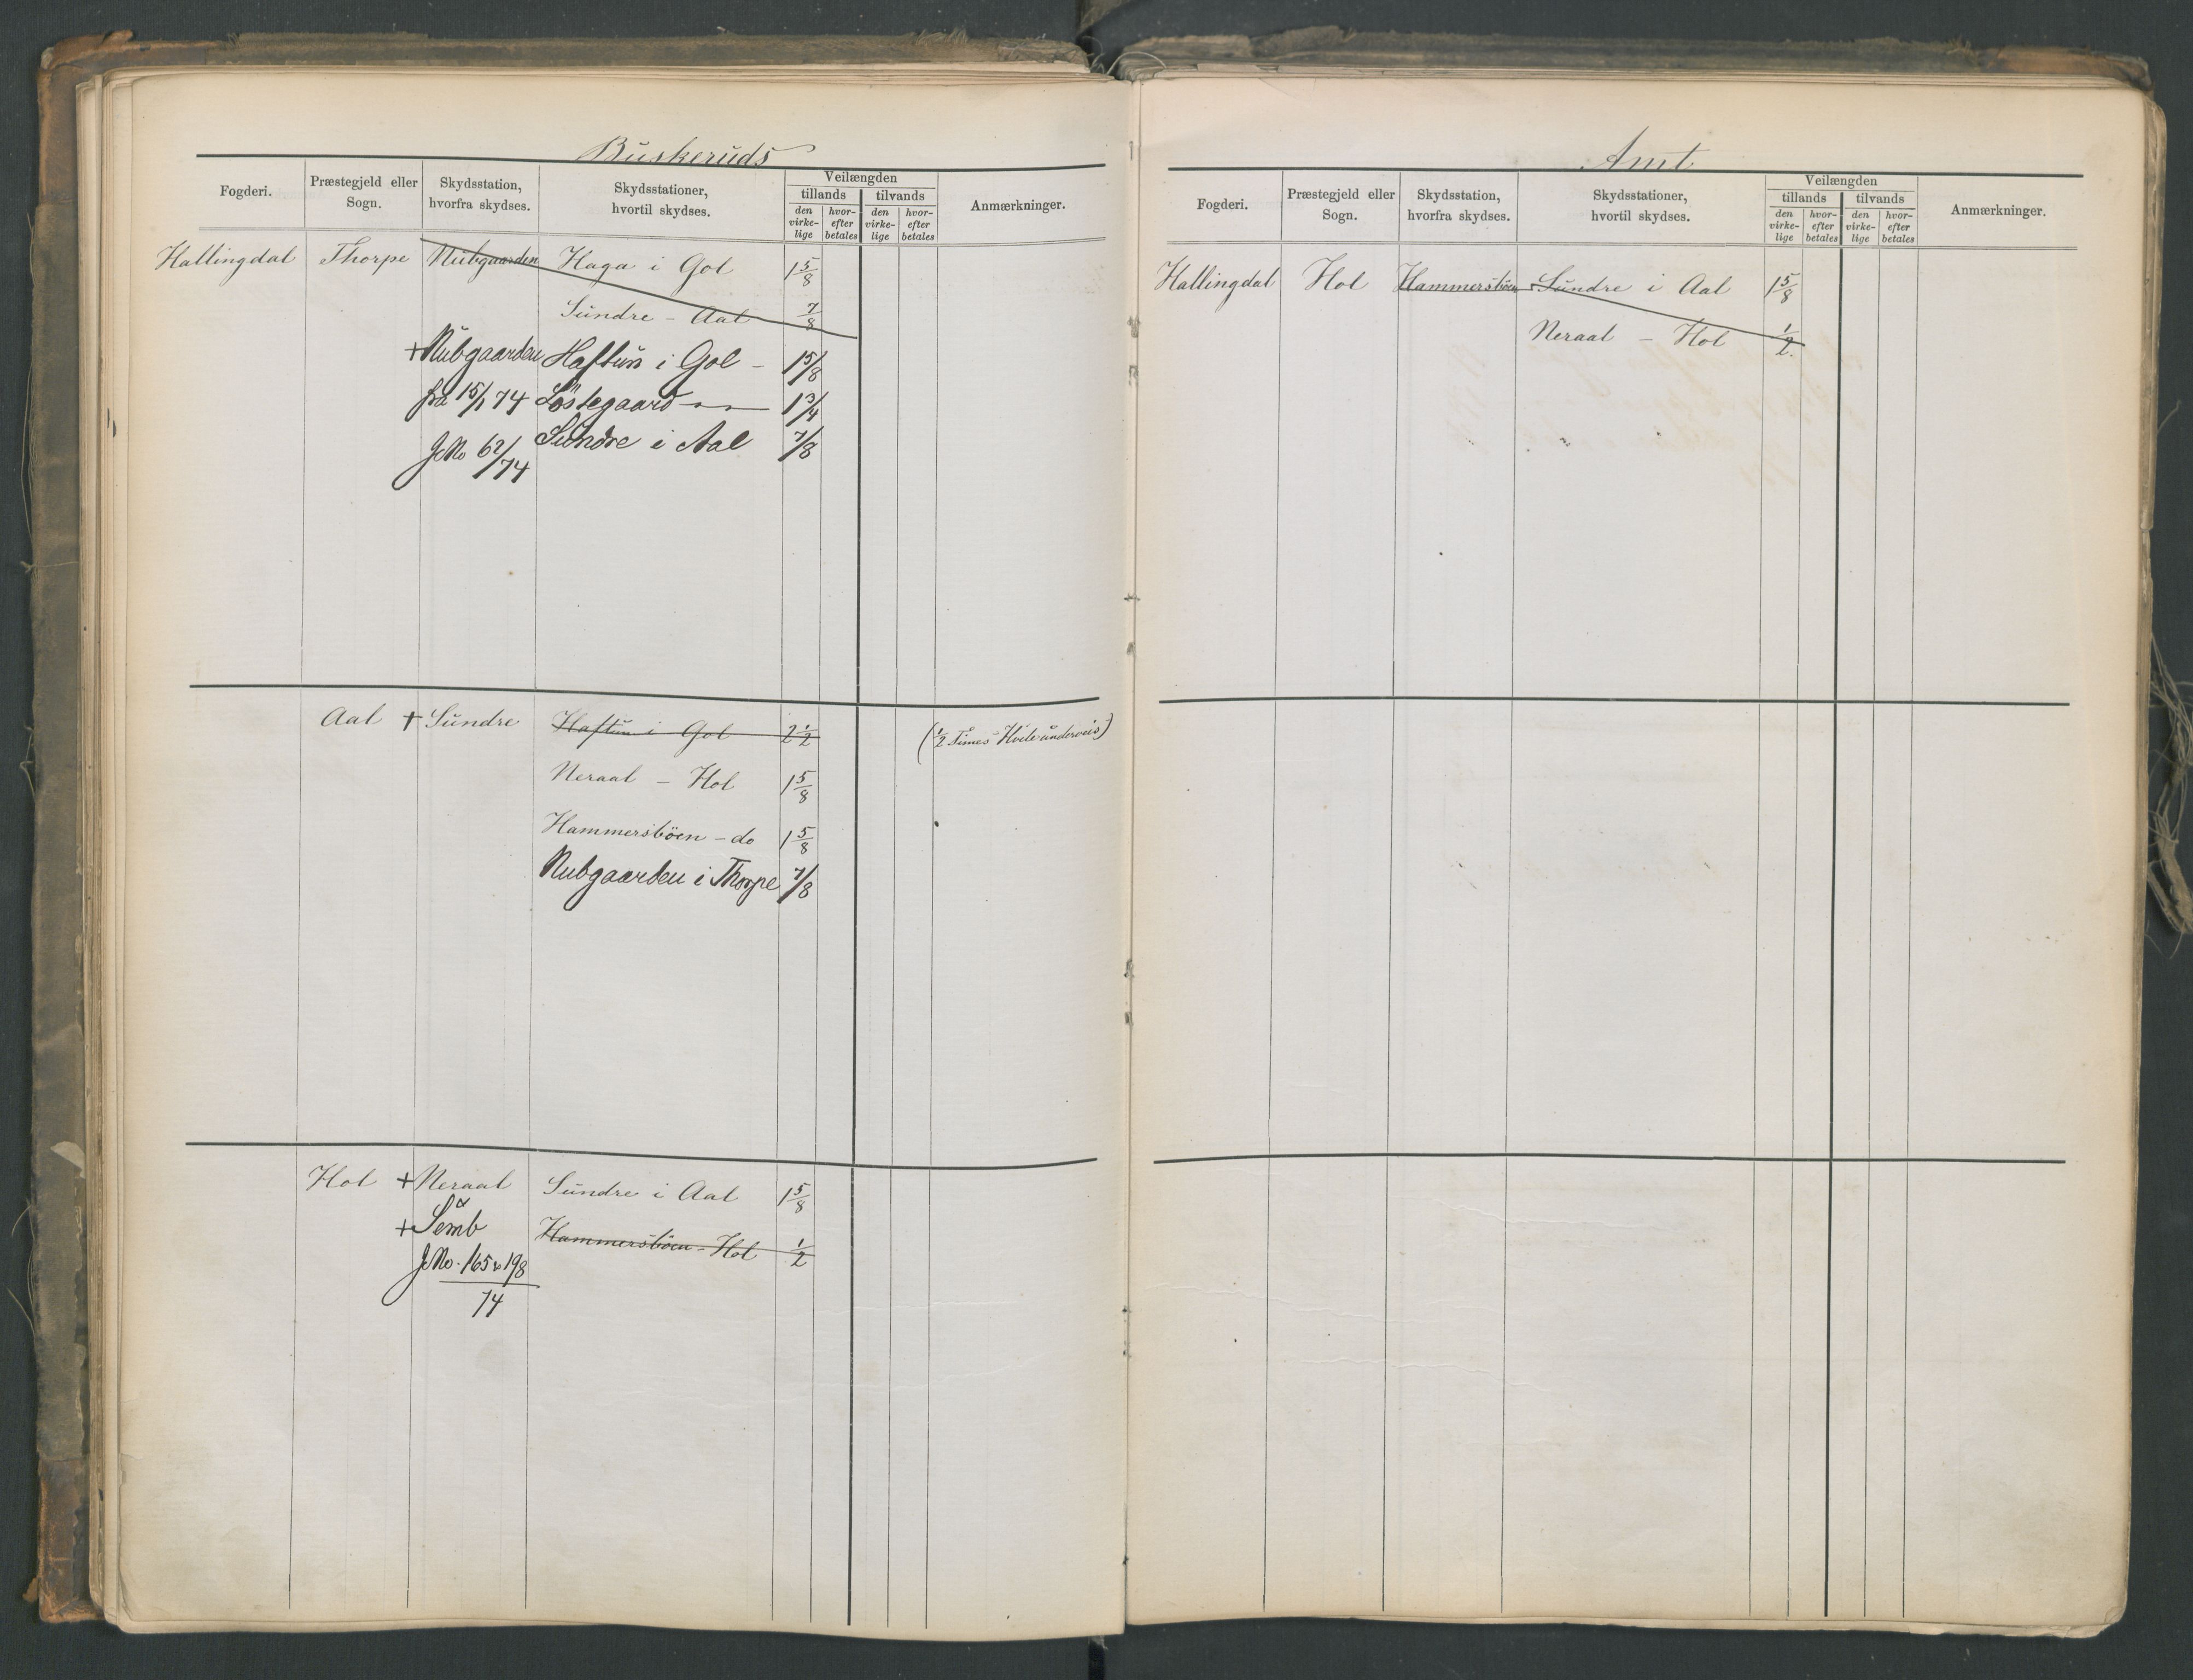 Buskeruds
Fogderi. Præstegjeld eller Sogn. Skydsstation, hvorfra skydses. Skydsstationer, hvortil skydses. Veilængden tillands den virke-lige hvor-efter betales tilvands den virke-lige hvor-efter betales Anmærkninger.
Hallingdal Thorpe Nubgaarden Haga i Gol 1 5/8
Sundre - Aal 7/8
+ Nubgaarden Haftun i Gol - 1 5/8
fra 15/1 74 Løstegaard 1 3/4
JNo 62/74 Sundre i Aal 7/8
Aal + Sundre Haftun i Gol 2 1/2 (1/2 Times Hvile underveis)
Neraal - Hol 1 5/8
Hammersbøen - do 1 5/8
Nubgaarden i Thorpe 7/8
Hol + Neraal Sundre i Aal 1 5/8
+ Hammersbøen - Hol 1/2
JNo. 165 198
74
Amt
Fogderi. Præstegjeld eller Sogn. Skydsstation, hvorfra skydses. Skydsstationer, hvortil skydses. Veilængden tillands den virke-lige hvor-efter betales tilvands den virke-lige hvor-efter betales Anmærkninger.
Hallingdal Hol Hammersbøen + Sundre i Aal 1 5/8
Neraal - Hol 1/2